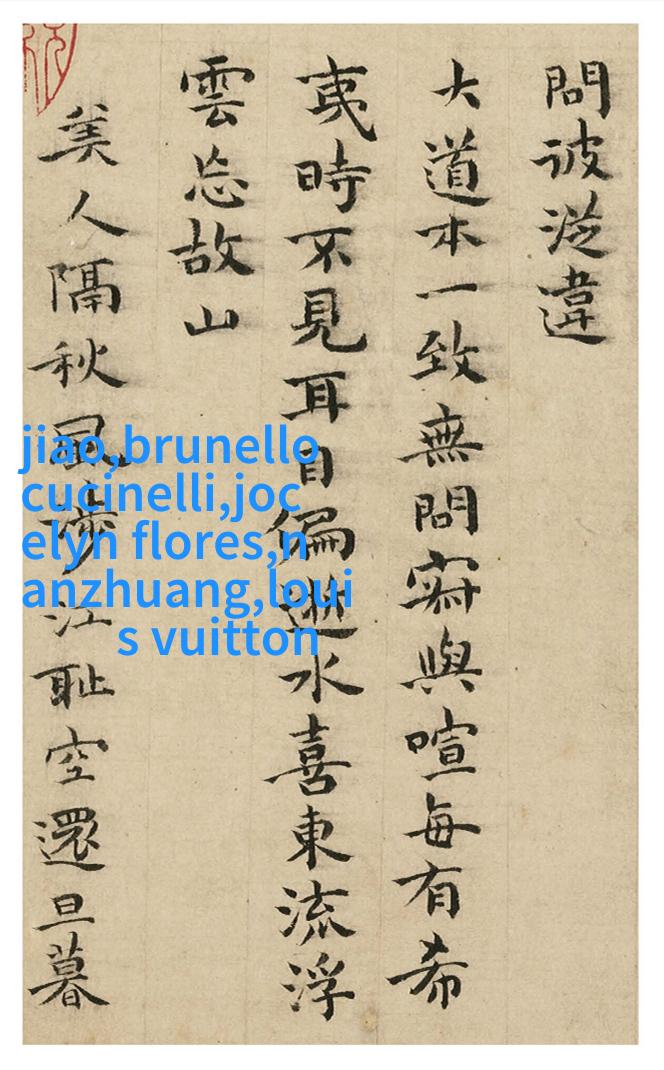 問彼從違
大道本一致無間寂與喧每有希
夷時不見耳目偏逝水喜東流浮
雲忘故山
美人隔秋風涉江耻空還旦暮
jiao,brunello
cucinelli,joc
elyn flores,n
anzhuang,loui
s vuitton